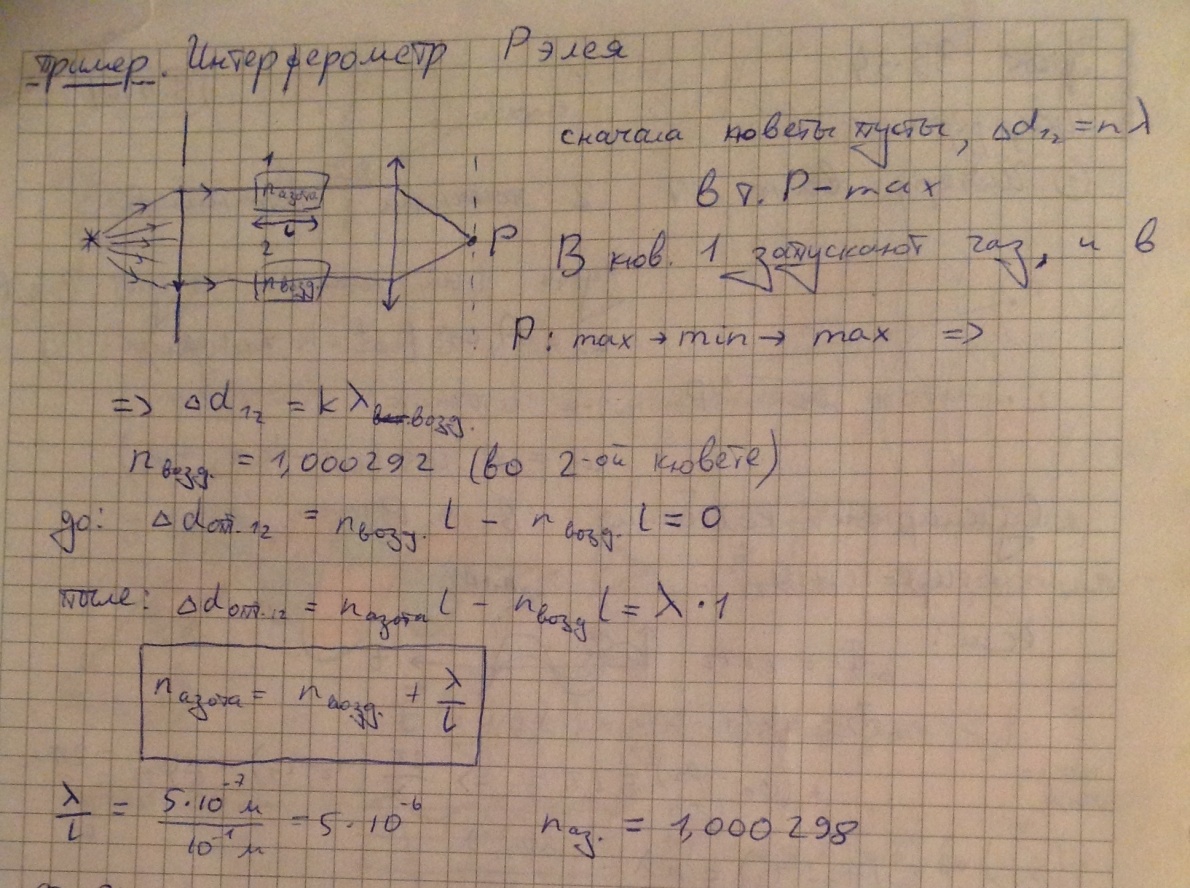 Пример. Интерферометр Рэлея
сначала кюветы пусты, Δd₁₂ = nλ
в т. P - max
1
n азота
l
2
n возд.
P
В кюв. 1 запускают газ, и в
P: max → min → max =>
=> Δd₁₂ = kλ возд.
n возд. = 1,000292 (во 2-ой кювете)
до: Δd опт. 12 = n возд. l - n возд. l = 0
после: Δd опт. 12 = n азота l - n возд l = λ · 1
n азота = n возд. + λ/l
λ/l = 5·10⁻⁷ м / 10⁻¹ м = 5·10⁻⁶ n аз. = 1,000298